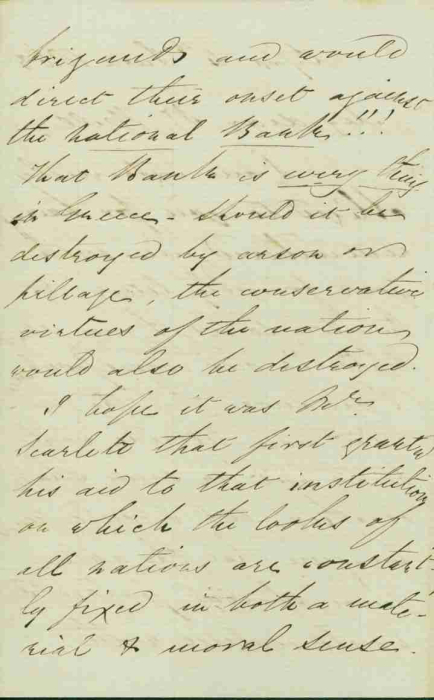 brigands and would
direct their onset against
the National Bank!!!
That Bank is every thing
in Greece - Should it be
destroyed by arson or
pillage, the conservative
virtues of the nation
would also be destroyed.
I hope it was Mr.
Scarlett that first granted
his aid to that institution
on which the looks of
all nations are constant-
ly fixed in both a mate-
rial & moral sense.